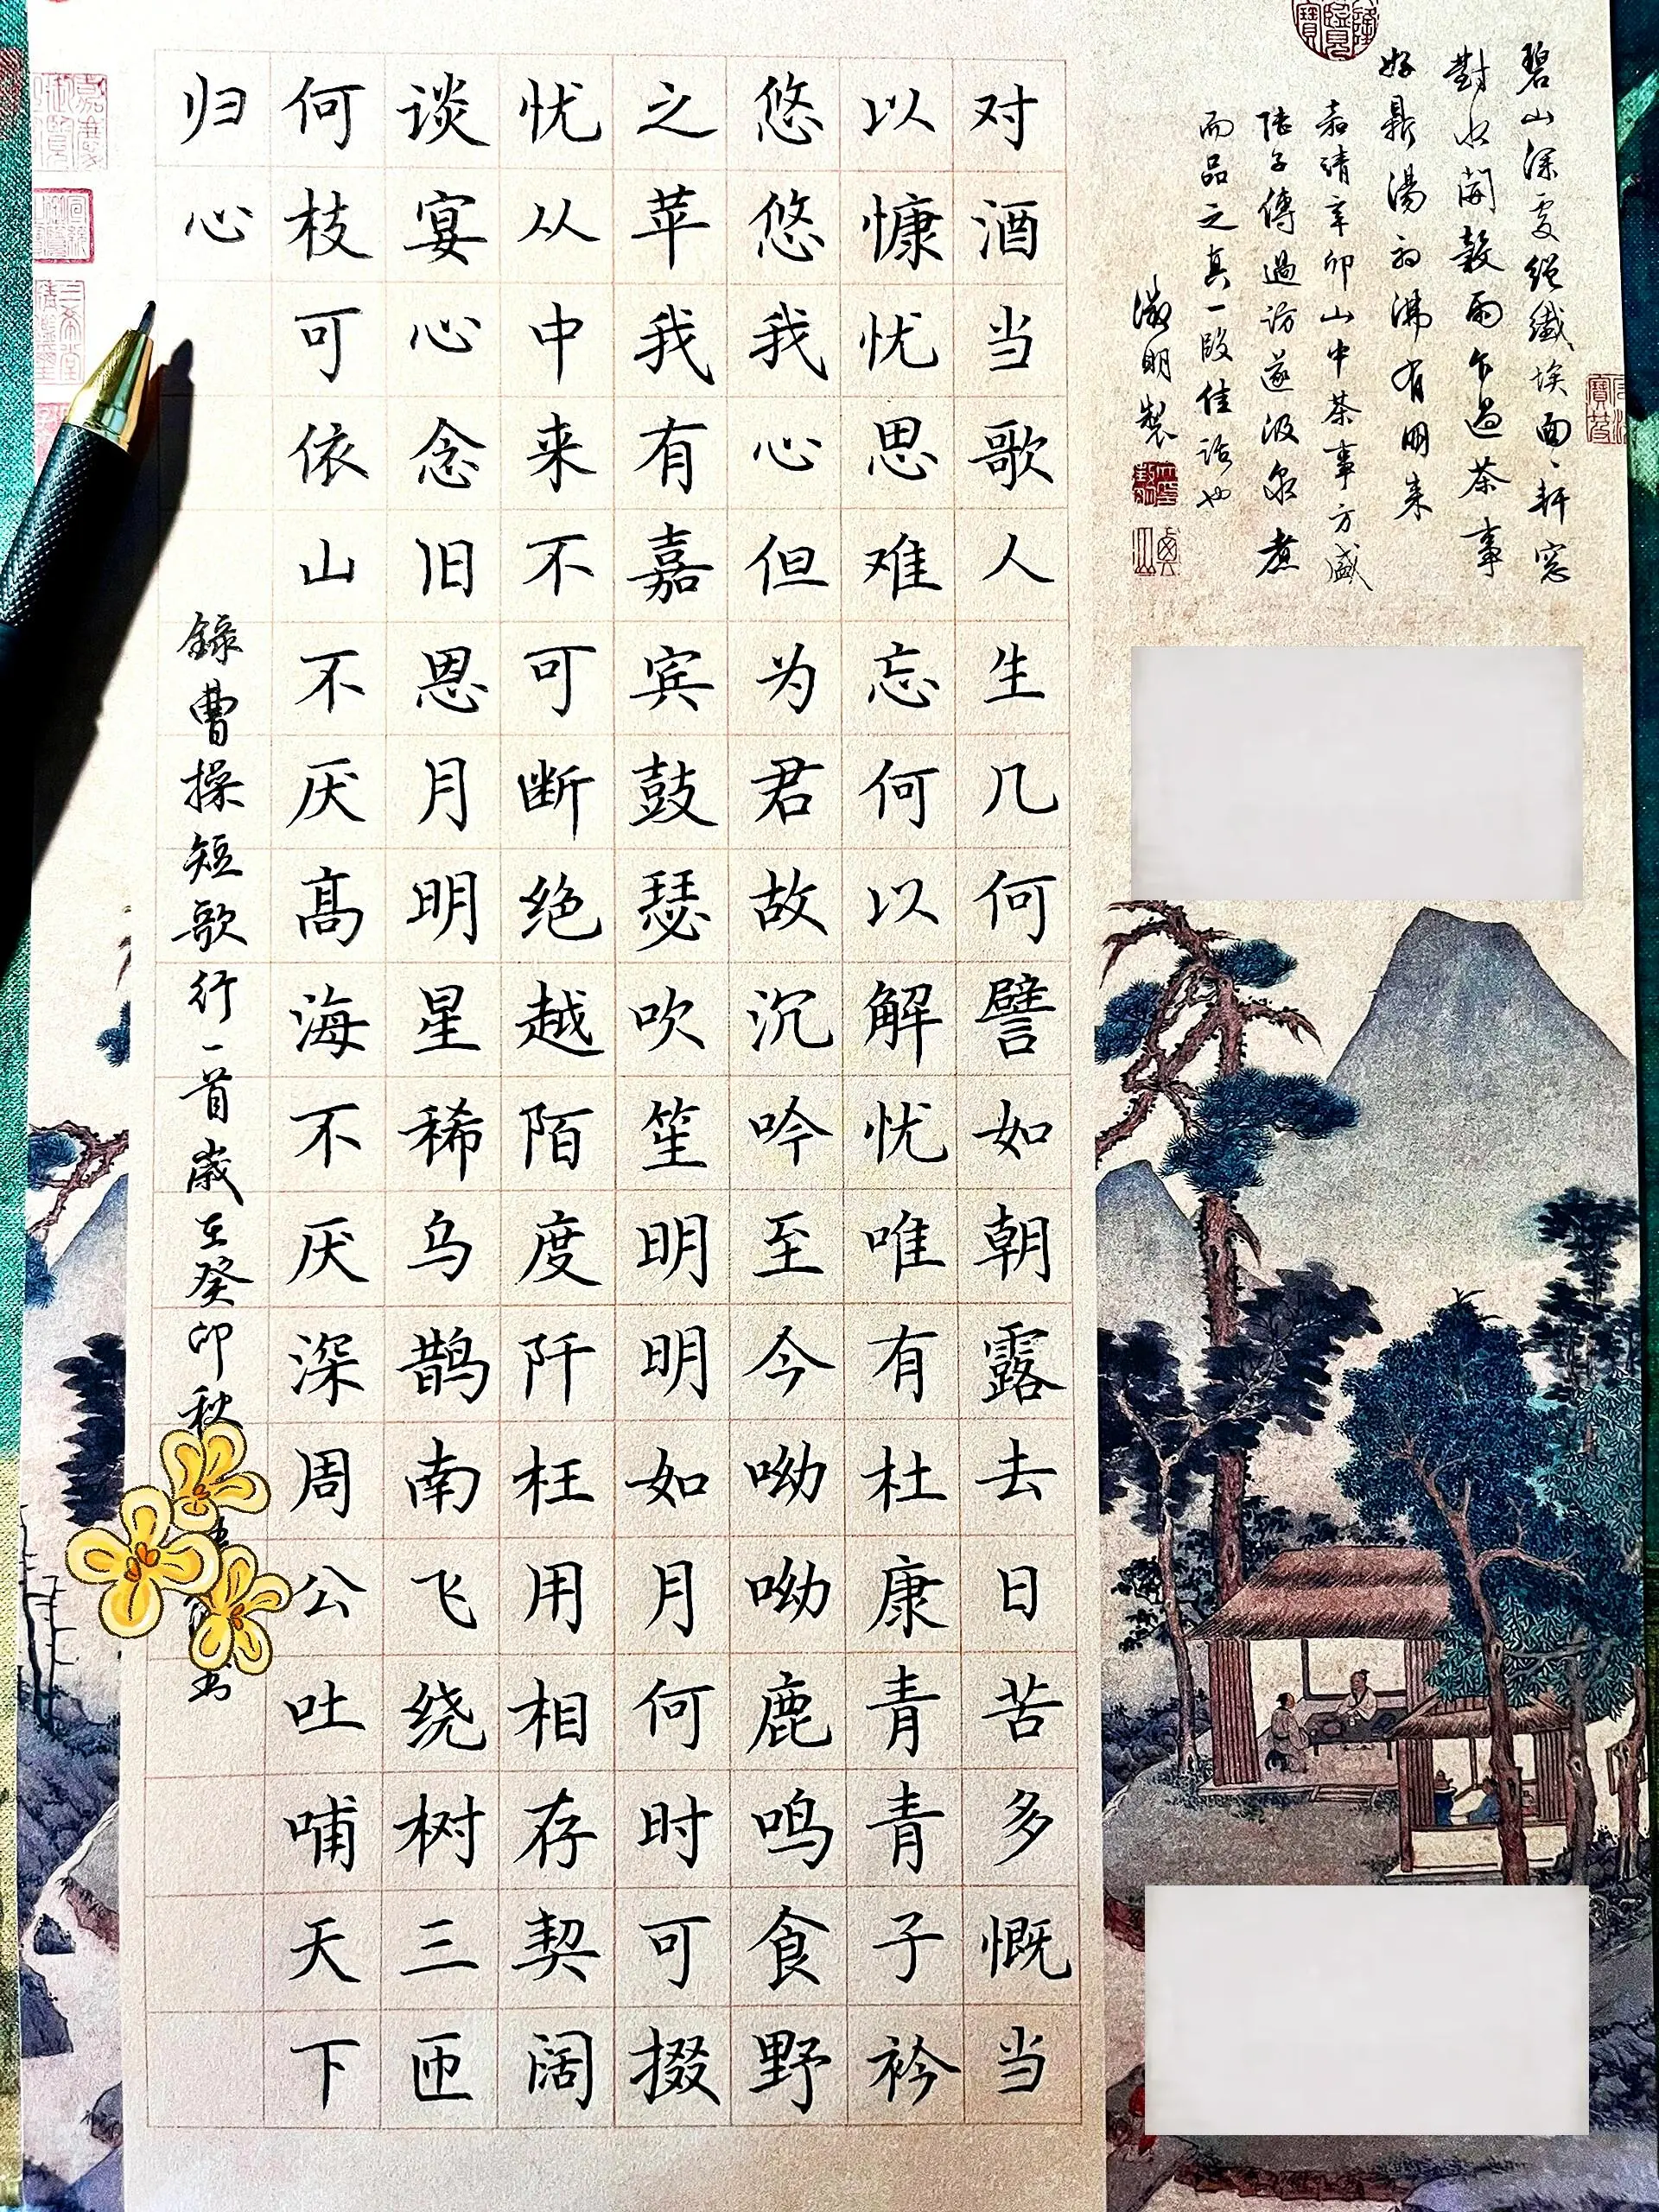 碧山深處絕纖埃面〻軒窓
對水開穀雨乍過茶事
好鼎湯初沸有朋來
嘉靖辛卯山中茶事方盛
陸子傳過訪遂汲泉煮
而品之真一段佳話也
徵明製
对酒当歌人生几何譬如朝露去日苦多慨当
以慷忧思难忘何以解忧唯有杜康青青子衿
悠悠我心但为君故沉吟至今呦呦鹿鸣食野
之苹我有嘉宾鼓瑟吹笙明明如月何时可掇
忧从中来不可断绝越陌度阡枉用相存契阔
谈宴心念旧恩月明星稀乌鹊南飞绕树三匝
何枝可依山不厌髙海不厌深周公吐哺天下
归心
錄曹操短歌行一首歲在癸卯秋
书